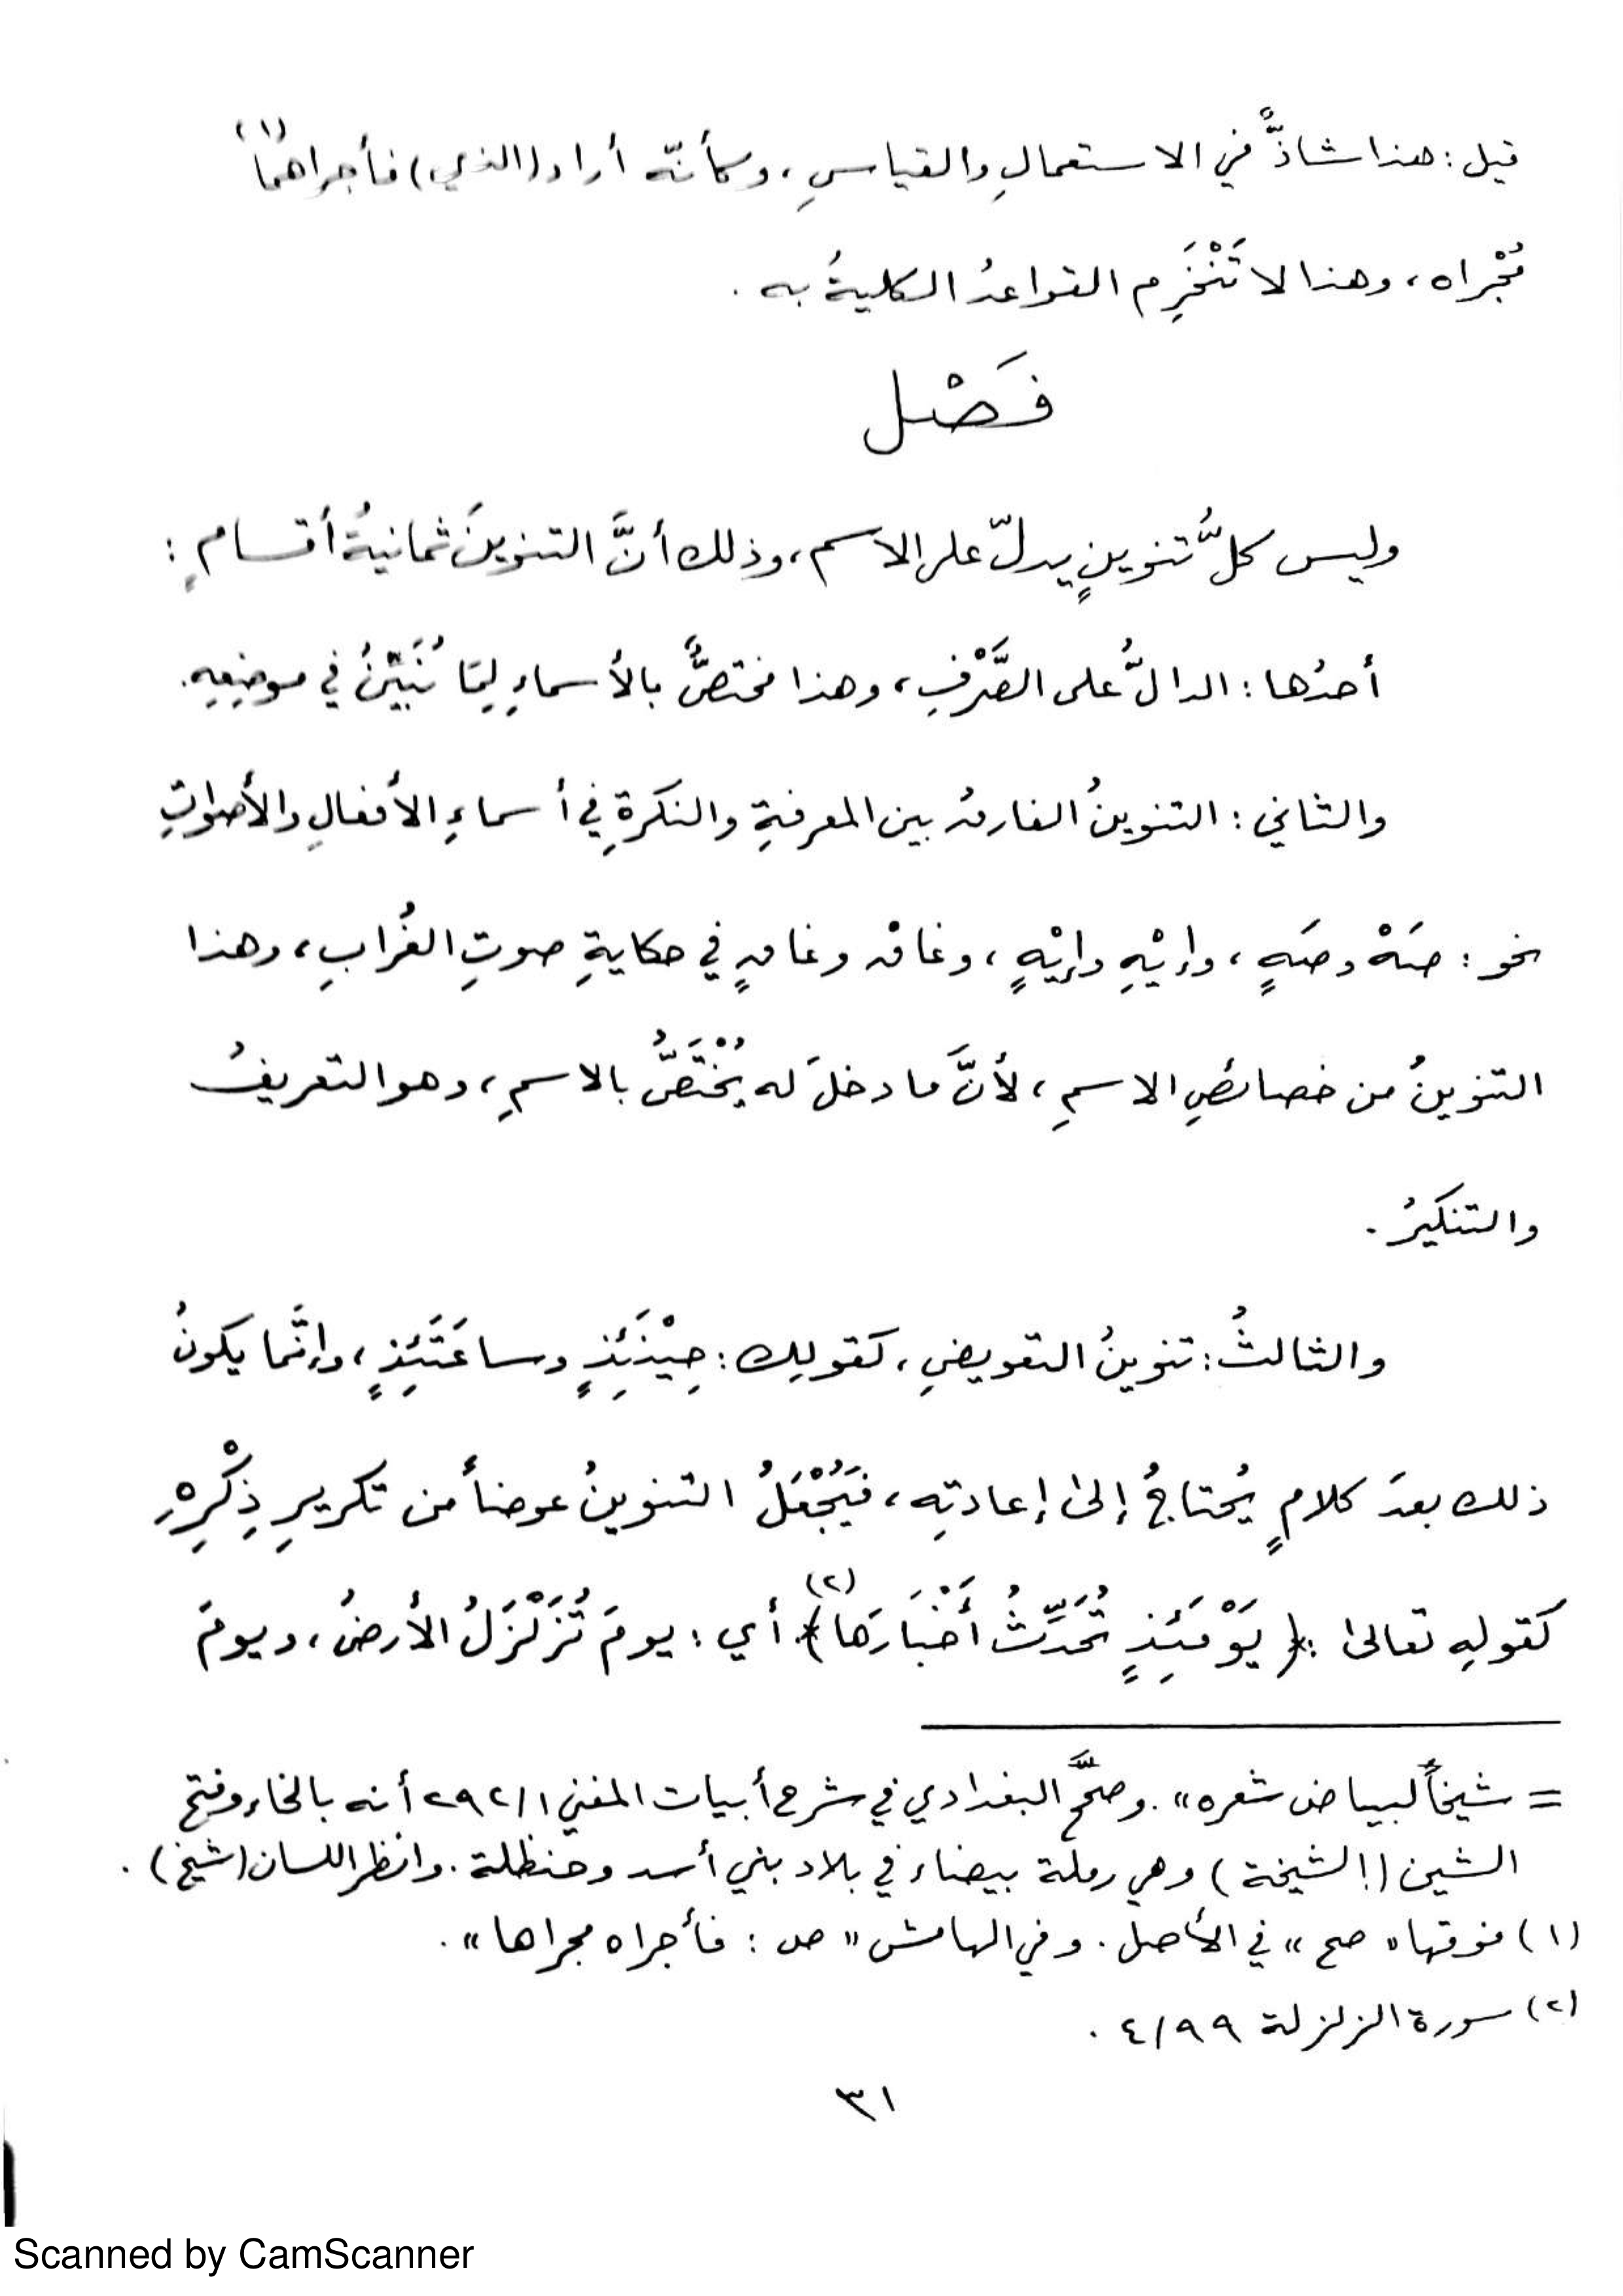 قيل : هذا شاذٌّ في الاستعمالِ والقياسِ ، وكأنّه أراد (الذي) فأجراهما(١)
مُجْراه ، وهذا لا تَنْخَرِم القواعدُ الكليةُ به .
فَصْل
وليس كلُّ تنوينٍ يدلّ على الاسم ، وذلك أنَّ التنوينَ ثمانيةُ أقسامٍ :
أحدُها : الدالُّ على الصَّرْفِ ، وهذا مختصٌّ بالأسماءِ لِمَا نُبَيِّنُ في موضِعِهِ .
والثاني : التنوينُ الفارقُ بين المعرفةِ والنكرةِ في أسماءِ الأفعالِ والأصواتِ
نحو : صَهْ وصَهٍ ، وإيْهِ وإيْهٍ ، وغاقِ وغاقٍ في حكايةِ صوتِ الغُرابِ ، وهذا
التنوينُ من خصائصِ الاسمِ ، لأنَّ ما دخلَ له يُخْتَصُّ بالاسمِ ، وهو التعريفُ
والتنكيرُ .
والثالثُ : تنوينُ التعويضِ ، كقولِك : حِيْنَئِذٍ وساعَتَئِذٍ ، وإنَّما يكونُ
ذلك بعدَ كلامٍ يُحتاجُ إلى إعادتِه ، فَيُجْعَلُ التنوينُ عوضاً من تكريرِ ذِكْرِهِ
كقولِهِ تعالى : ﴿ يَوْمَئِذٍ تُحَدِّثُ أَخْبَارَها ﴾(٢) أي : يومَ تُزَلْزَلُ الأرضُ ، ويومَ
= شيخاً لبياض شعره » . وصحَّح البغدادي في شرح أبيات المغني ٢٩٢/١ أنه بالخاء وفتح
الشين (الشيخة) وهي رملة بيضاء في بلاد بني أسد وحنظلة . وانظر اللسان (شيخ) .
(١) فوقها « صح » في الأصل . وفي الهامش « ص : فأجراه مجراها » .
(٢) سورة الزلزلة ٤/٩٩ .
٣١
Scanned by CamScanner